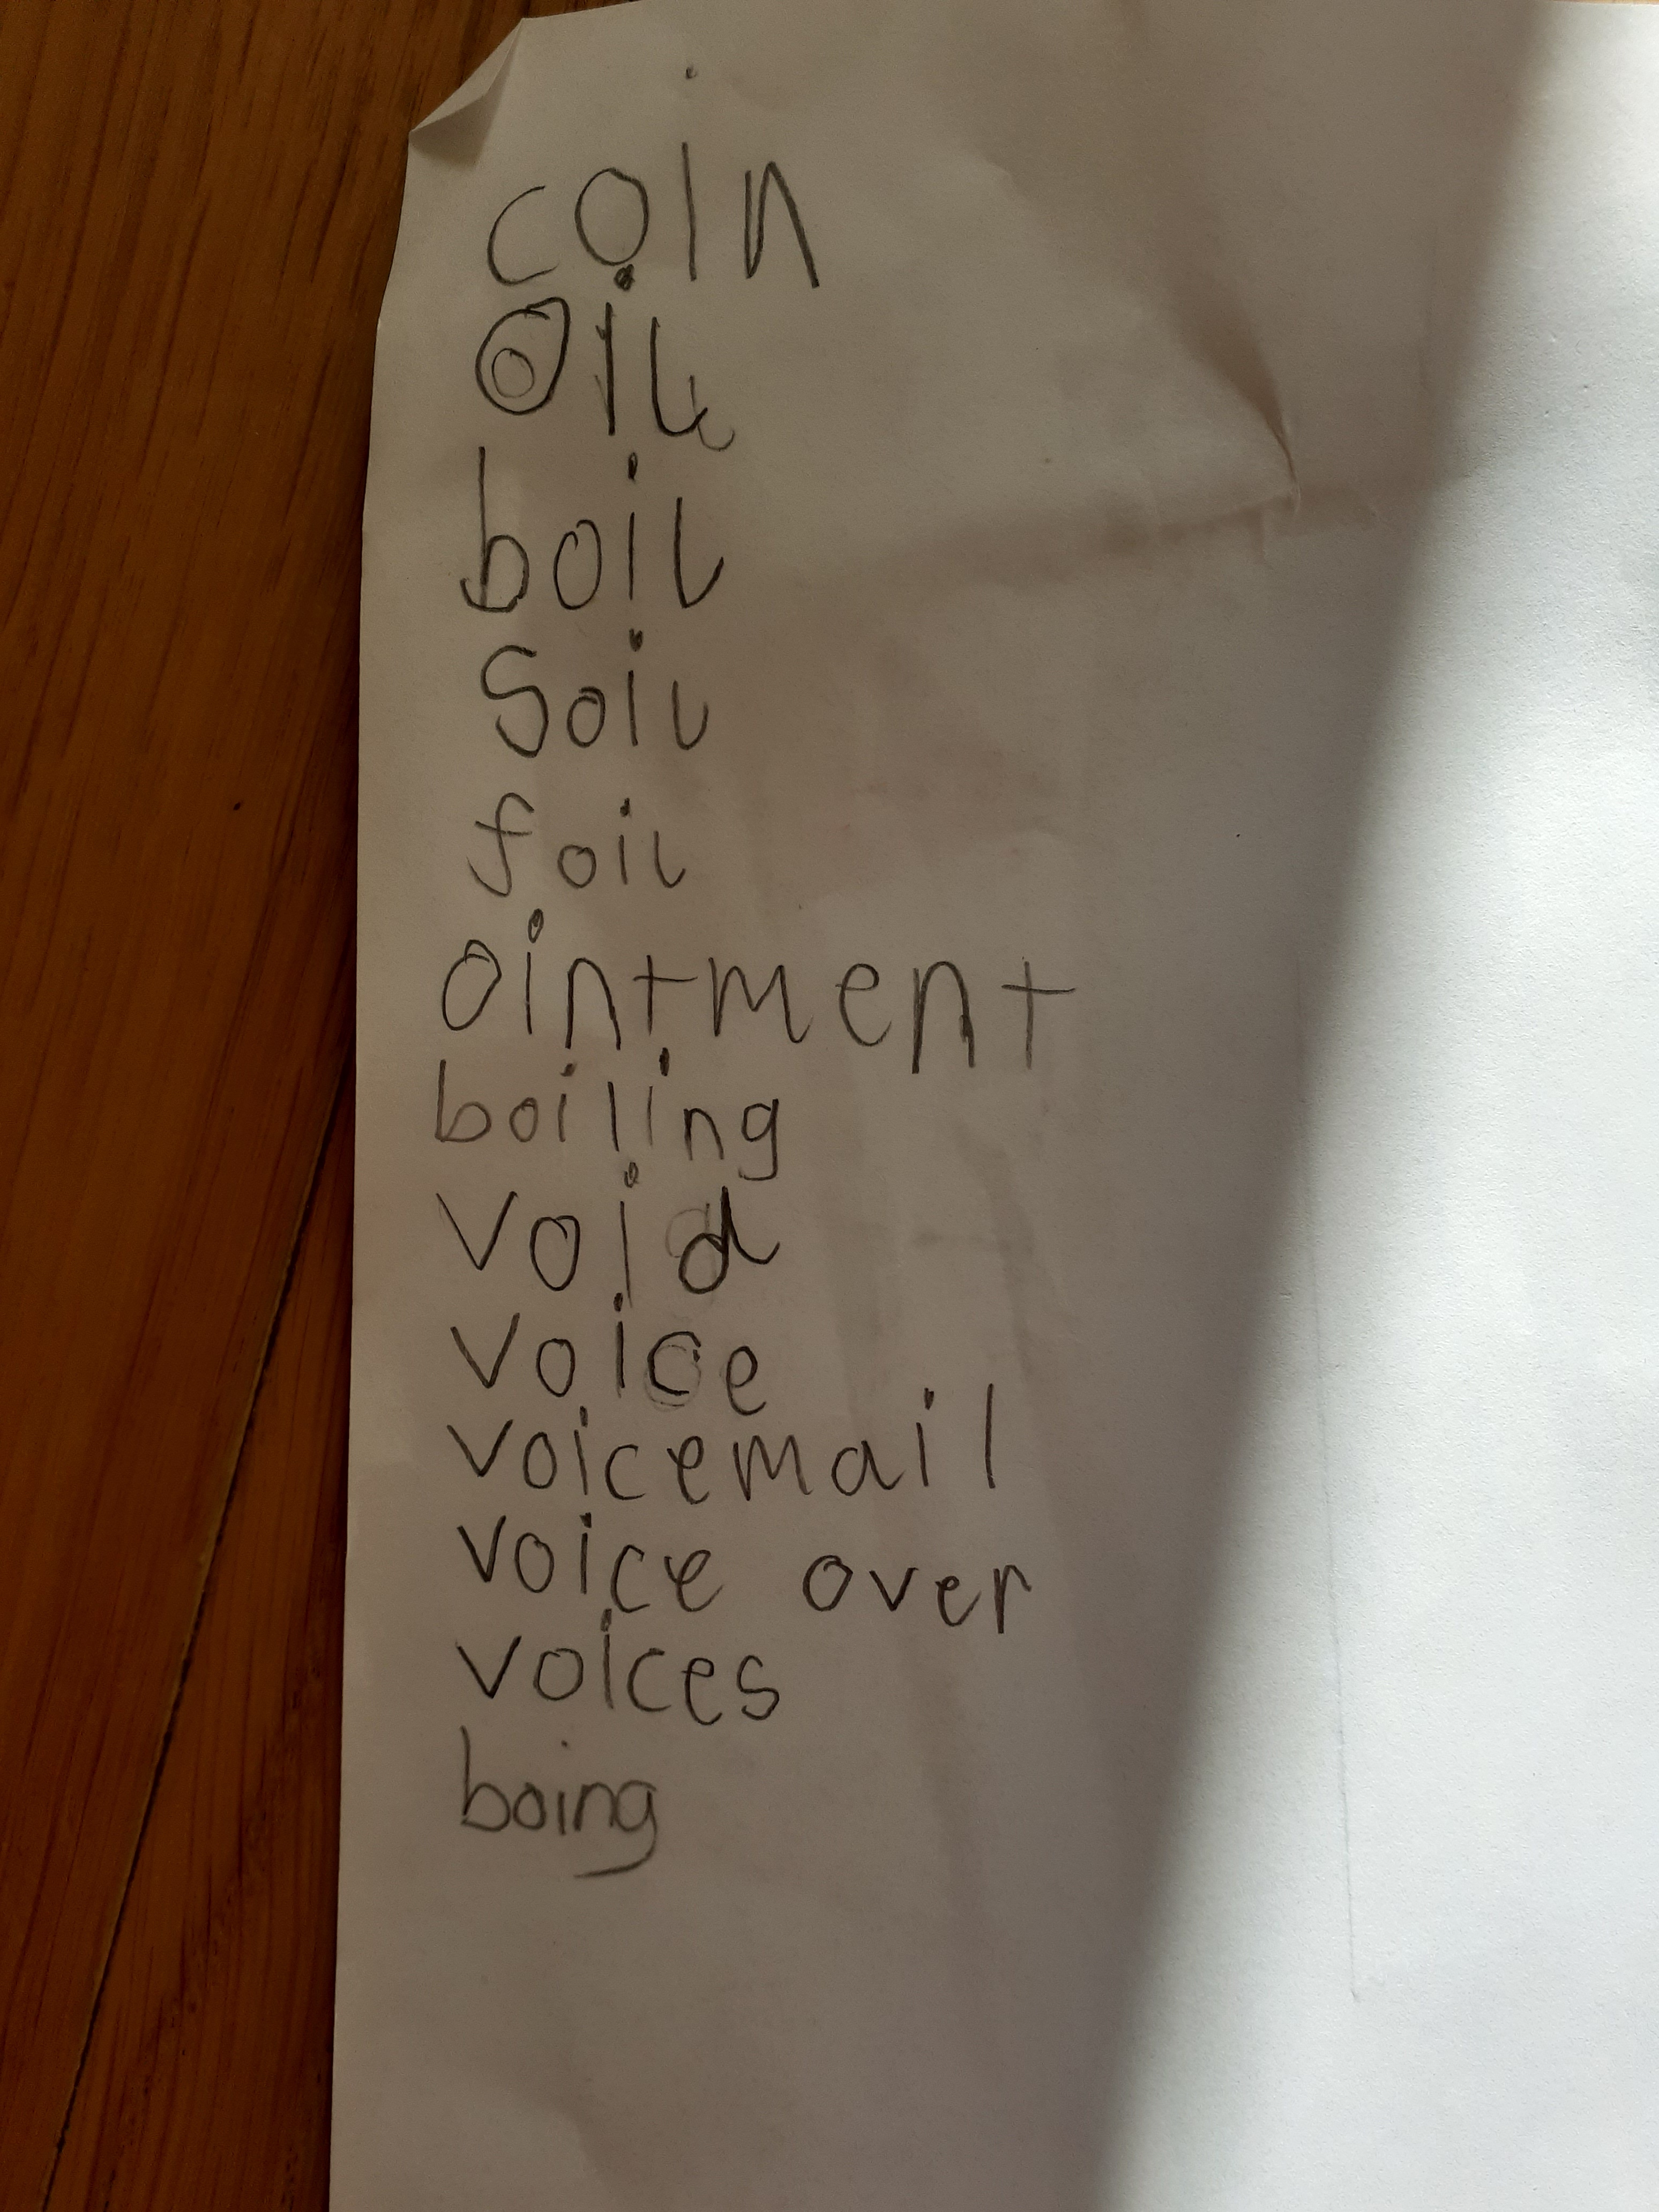 coin
oil
boil
Soil
foil
ointment
boiling
void
voice
voicemail
voice over
voices
boing